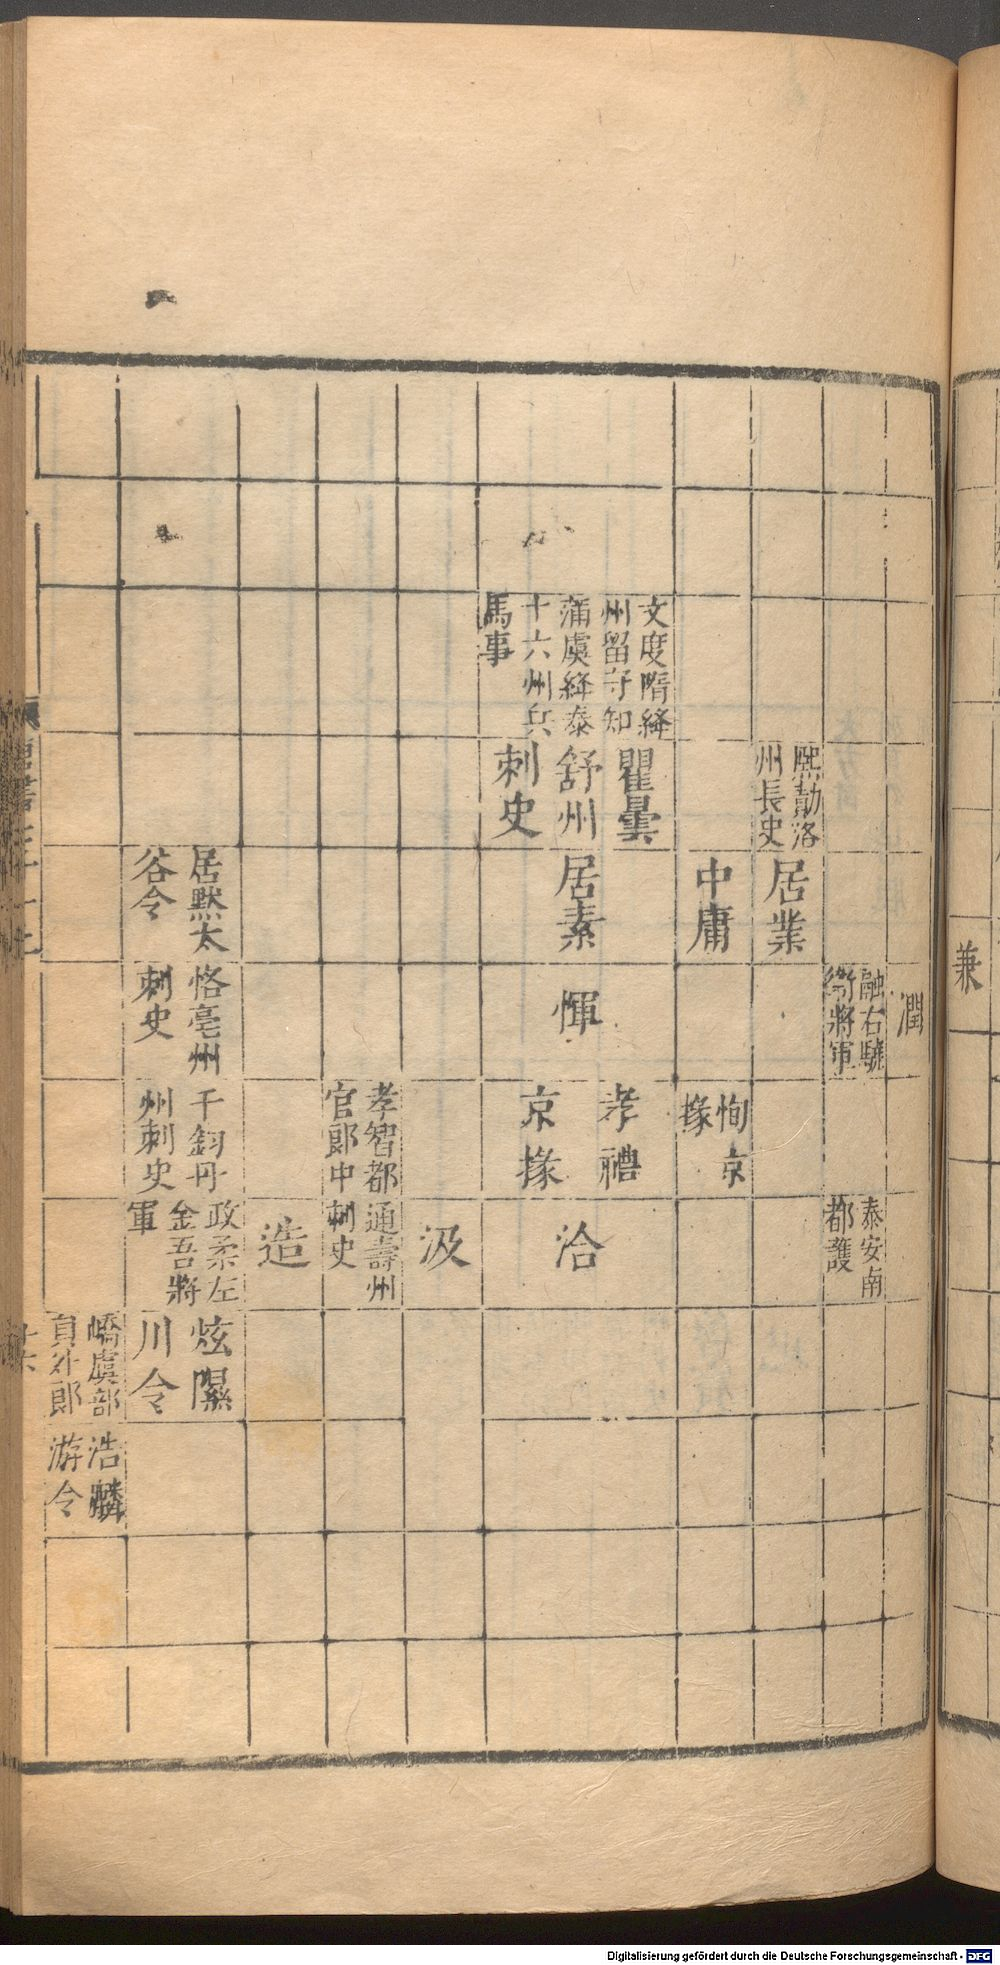 潤
融右驍
衛將軍
泰安南
都護
熙勣洛
州長史
居業
中庸
恂京
掾
文度隋絳
州留守知
蒲虞絳泰
十六州兵
馬事
瞿曇
舒州
刺史
居素
惲
孝禮
京掾
洽
汲
孝智都
官郎中
通壽州
刺史
造
居黙太
谷令
恪亳州
刺史
千鈞丹
州刺史
政柔左
金吾將
軍
炫隰
川令
嶠虞部
員外郎
浩麟
游令
兼
Digitalisierung gefördert durch die Deutsche Forschungsgemeinschaft - DFG